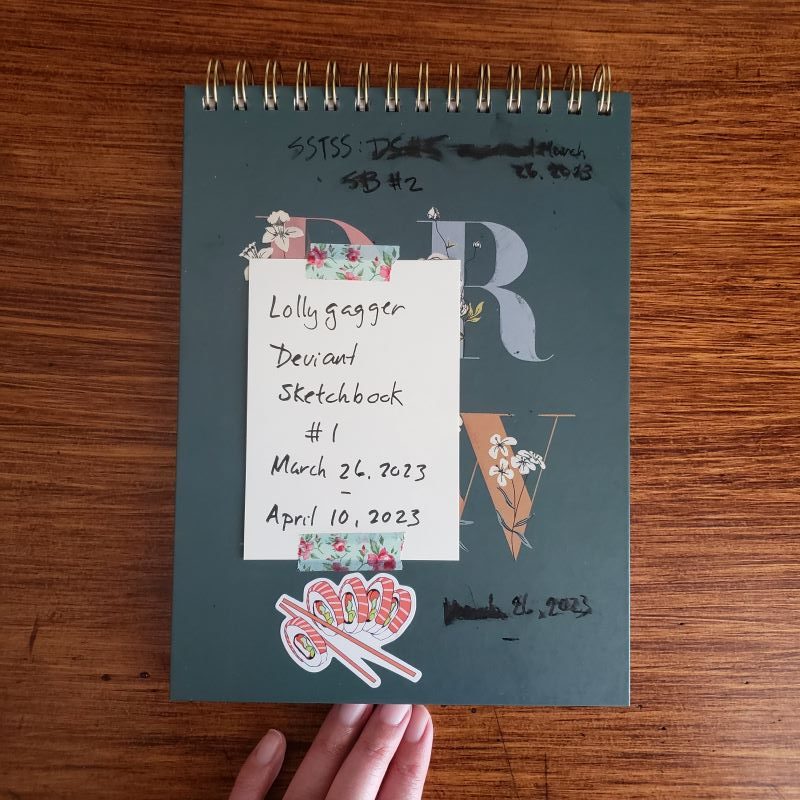 SSTSS: March
26, 2023
SB #2
D R
Lollygagger
Deviant
Sketchbook
#1
March 26, 2023
-
April 10, 2023
W
26, 2023
-